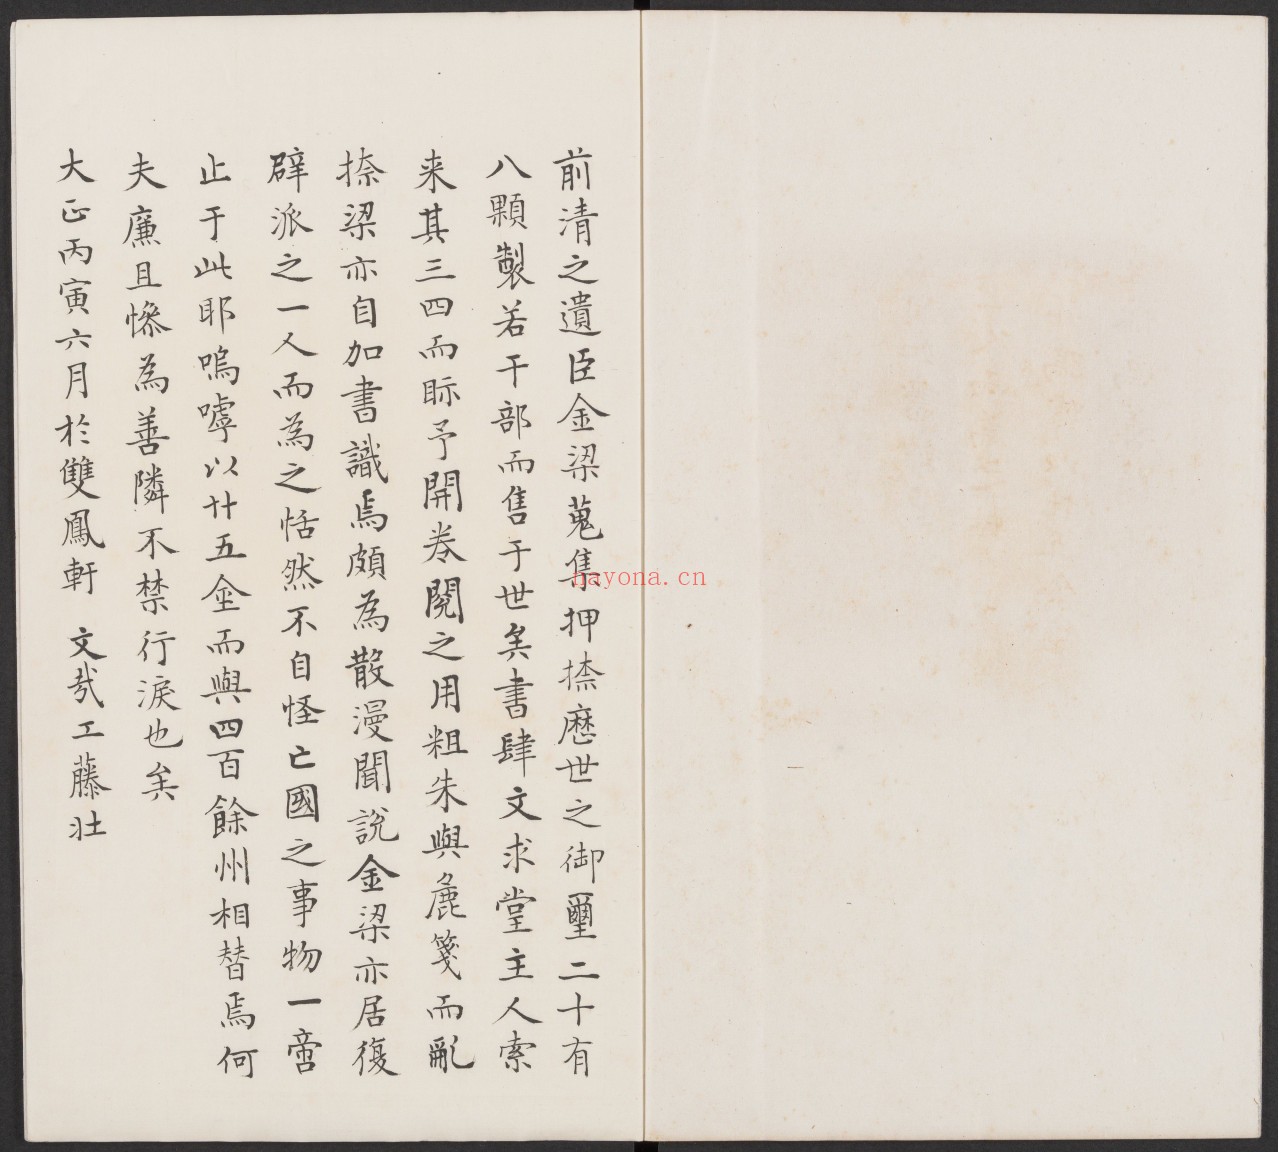 前清之遺臣金梁蒐集押捺歷世之御璽二十有
八顆製若干部而售于世矣書肆文求堂主人索
来其三四而眎予開券閱之用粗朱與麁箋而亂
捺梁亦自加書識焉頗為散漫聞說金梁亦居復
辟派之一人而為之恬然不自怪亡國之事物一啻
止于此耶嗚嘑以廿五金而與四百餘州相替焉何
夫廉且慘為善隣不禁行淚也矣
大正丙寅六月於雙鳳軒 文哉工藤壮
bayona.cn